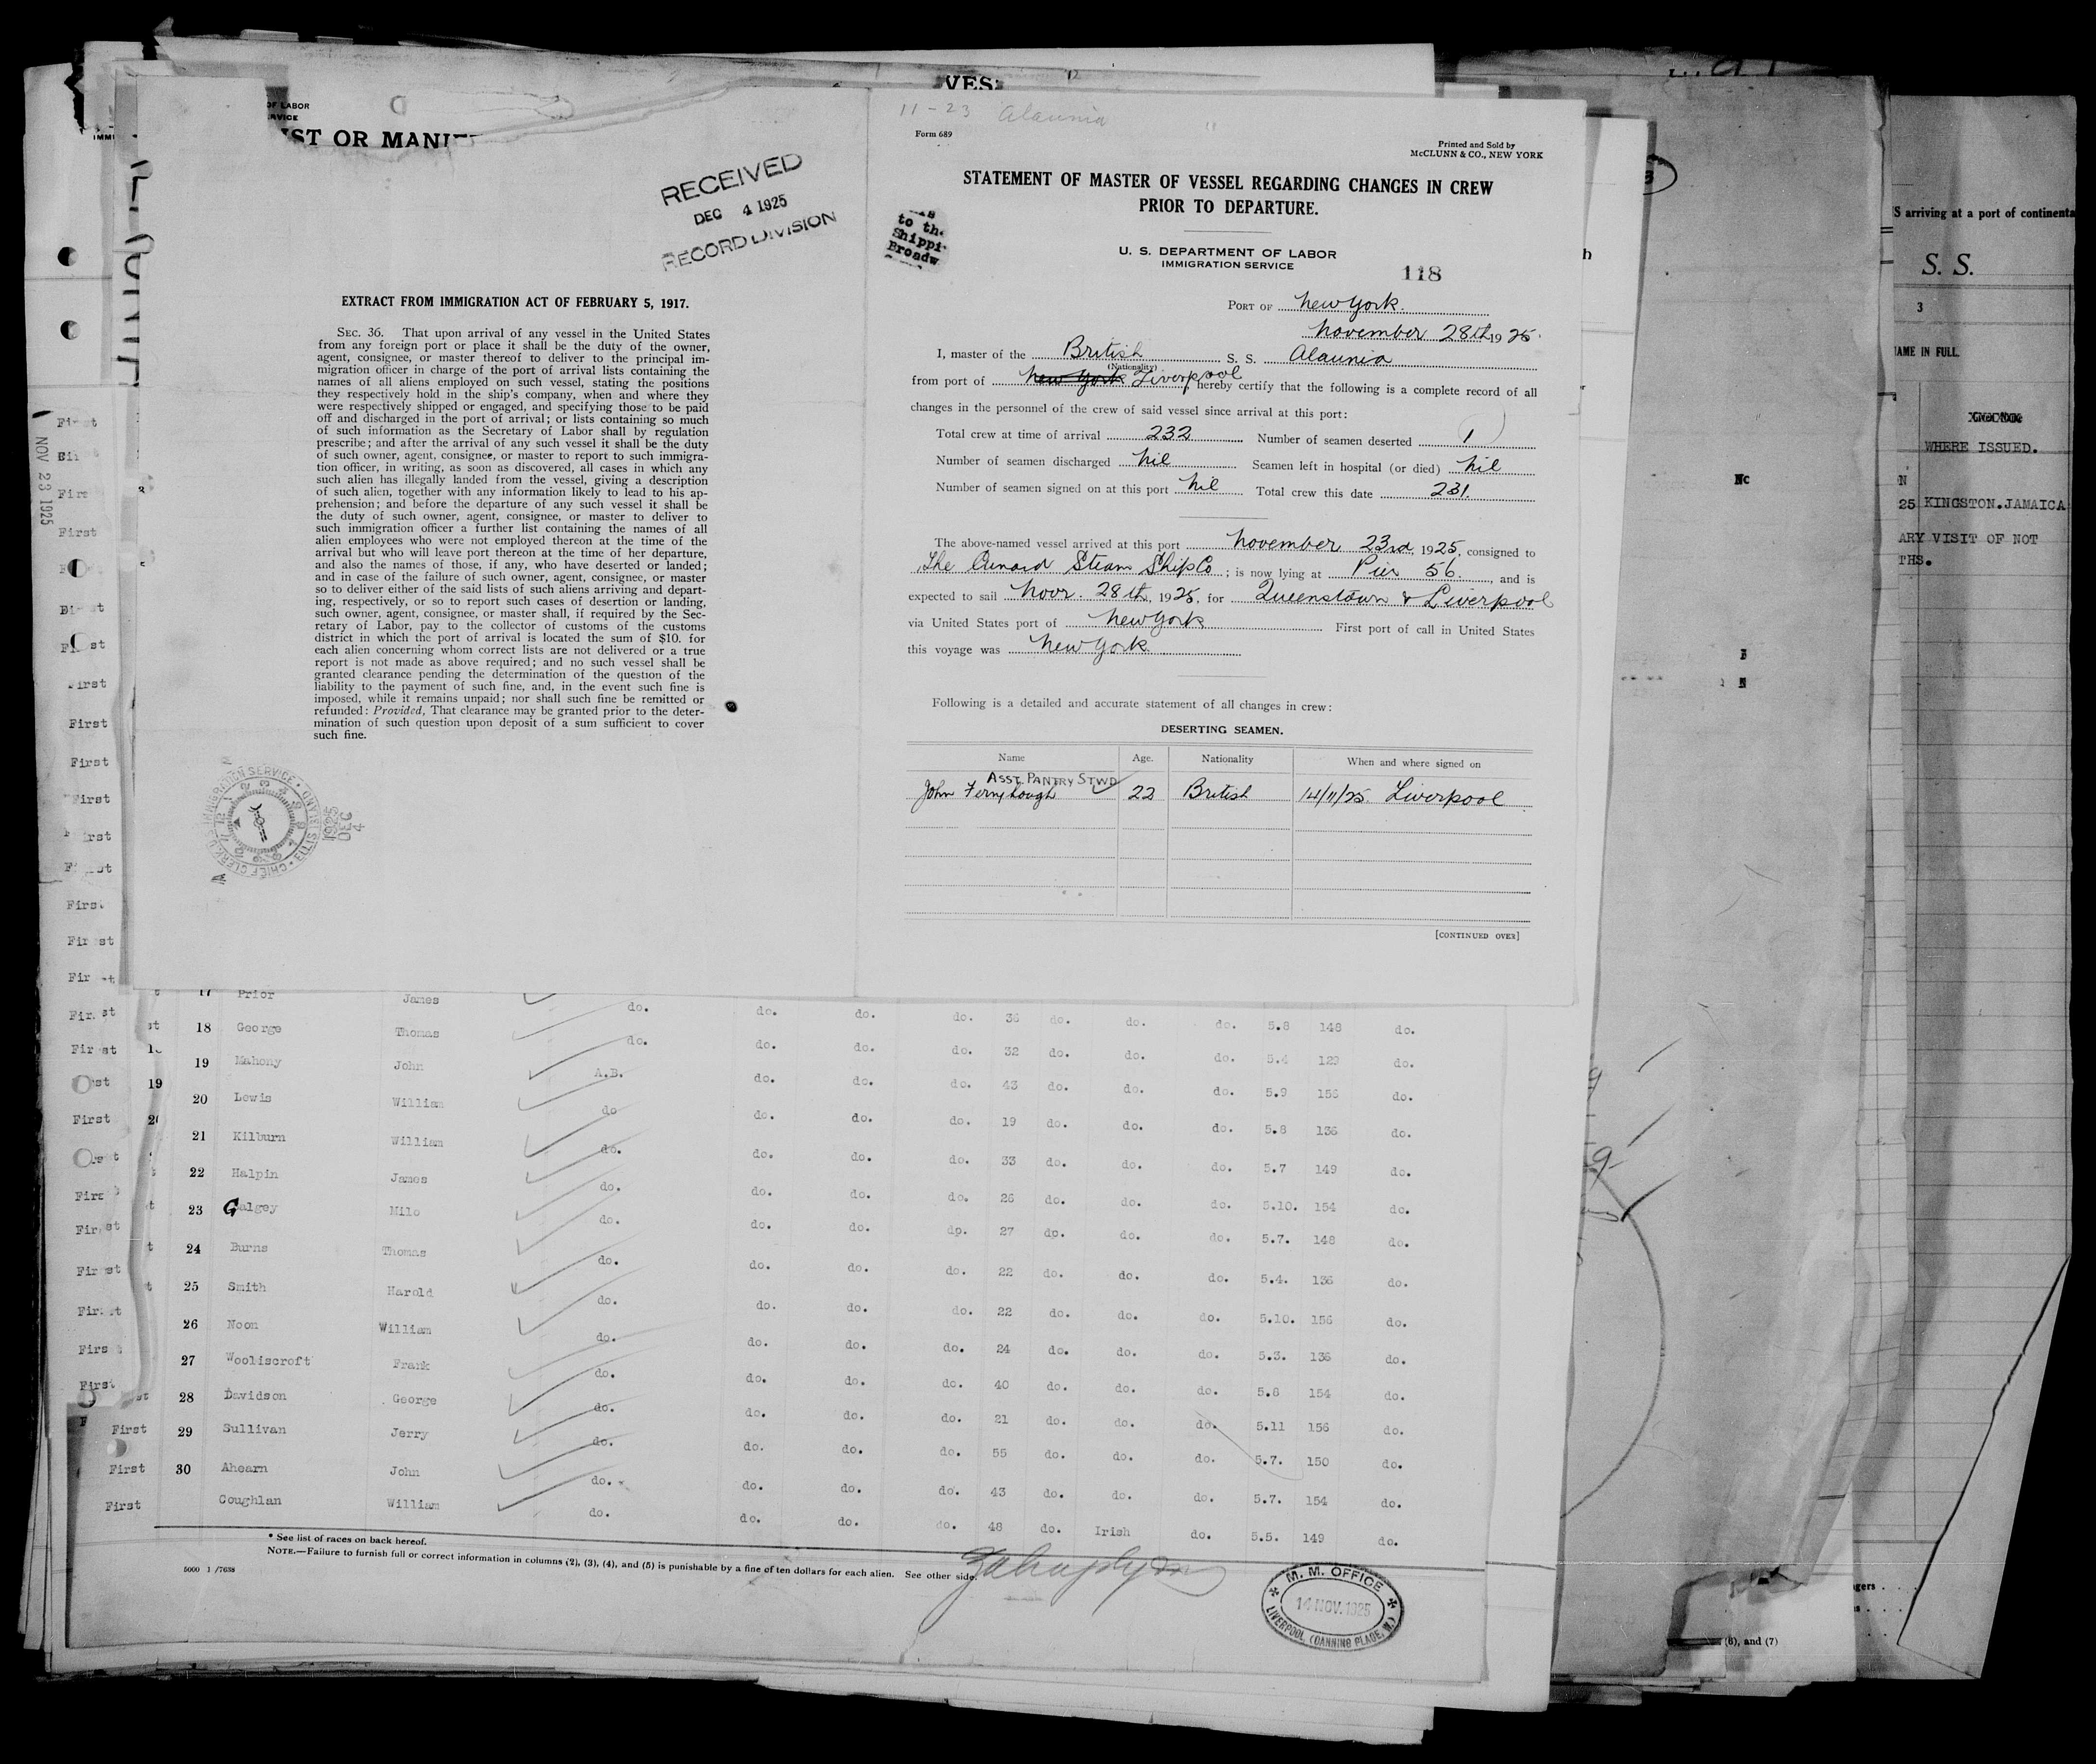 VES
OF LABOR
RVICE
IST OR MANI
RECEIVED
DEC 4 1925
RECORD DIVISION
EXTRACT FROM IMMIGRATION ACT OF FEBRUARY 5, 1917.
SEC. 36. That upon arrival of any vessel in the United States
from any foreign port or place it shall be the duty of the owner,
agent, consignee, or master thereof to deliver to the principal im-
migration officer in charge of the port of arrival lists containing the
names of all aliens employed on such vessel, stating the positions
they respectively hold in the ship's company, when and where they
were respectively shipped or engaged, and specifying those to be paid
off and discharged in the port of arrival; or lists containing so much
of such information as the Secretary of Labor shall by regulation
prescribe; and after the arrival of any such vessel it shall be the duty
of such owner, agent, consignee, or master to report to such immigra-
tion officer, in writing, as soon as discovered, all cases in which any
such alien has illegally landed from the vessel, giving a description
of such alien, together with any information likely to lead to his ap-
prehension; and before the departure of any such vessel it shall be
the duty of such owner, agent, consignee, or master to deliver to
such immigration officer a further list containing the names of all
alien employees who were not employed thereon at the time of the
arrival but who will leave port thereon at the time of her departure,
and also the names of those, if any, who have deserted or landed;
and in case of the failure of such owner, agent, consignee, or master
so to deliver either of the said lists of such aliens arriving and depart-
ing, respectively, or so to report such cases of desertion or landing,
such owner, agent, consignee, or master shall, if required by the Sec-
retary of Labor, pay to the collector of customs of the customs
district in which the port of arrival is located the sum of $10. for
each alien concerning whom correct lists are not delivered or a true
report is not made as above required; and no such vessel shall be
granted clearance pending the determination of the question of the
liability to the payment of such fine, and, in the event such fine is
imposed, while it remains unpaid; nor shall such fine be remitted or
refunded: Provided, That clearance may be granted prior to the deter-
mination of such question upon deposit of a sum sufficient to cover
such fine.
1925 DEC 4
11-23 Alaunia
Form 689
Printed and Sold by
McCLUNN & CO., NEW YORK
STATEMENT OF MASTER OF VESSEL REGARDING CHANGES IN CREW
PRIOR TO DEPARTURE.
to the
Shippi
Broadw
U. S. DEPARTMENT OF LABOR
IMMIGRATION SERVICE
118
PORT OF New York.
November 28th 1925.
I, master of the British S. S. Alaunia
(Nationality)
from port of New York Liverpool, hereby certify that the following is a complete record of all
changes in the personnel of the crew of said vessel since arrival at this port:
Total crew at time of arrival 232 Number of seamen deserted 1
Number of seamen discharged nil Seamen left in hospital (or died) nil
Number of seamen signed on at this port nil Total crew this date 231.
The above-named vessel arrived at this port November 23rd, 1925, consigned to
The Cunard Steam Ship Co; is now lying at Pier 56., and is
expected to sail Novr. 28th, 1925, for Queenstown & Liverpool
via United States port of New York First port of call in United States
this voyage was New York.
Following is a detailed and accurate statement of all changes in crew:
DESERTING SEAMEN.
Name Age. Nationality When and where signed on
ASST. PANTRY STWD
John Fernyhough 22 British 14/11/25. Liverpool
[CONTINUED OVER]
NOV 23 1925
17 Prior James do. do. do. do. 36 do. do. do. 5.8 148 do.
18 George Thomas do. do. do. do. 32 do. do. do. 5.4 129 do.
19 Mahony John A.B. do. do. do. 43 do. do. do. 5.9 156 do.
20 Lewis William do do. do. do. 19 do. do. do. 5.8 136 do.
21 Kilburn William do. do. do. do. 33 do. do. do. 5.7 149 do.
22 Halpin James do. do. do. do. 26 do. do. do. 5.10. 154 do.
23 Galgey Milo do. do. do. do. 27 do. do. do. 5.7. 148 do.
24 Burns Thomas do. do. do. do. 22 do. do. do. 5.4. 136 do.
25 Smith Harold do. do. do. do. 22 do. do. do. 5.10. 156 do.
26 Noon William do. do. do. do. 24 do. do. do. 5.3. 136 do.
27 Wooliscroft Frank do. do. do. do. 40 do. do. do. 5.8 154 do.
28 Davidson George do. do. do. do. 21 do. do. do. 5.11 156 do.
29 Sullivan Jerry do. do. do. do. 55 do. do. do. 5.7. 150 do.
30 Ahearn John do. do. do. do. 43 do. do. do. 5.7. 154 do.
First Coughlan William do. do. do. do. 48 do. Irish do. 5.5. 149 do.
* See list of races on back hereof.
NOTE.—Failure to furnish full or correct information in columns (2), (3), (4), and (5) is punishable by a fine of ten dollars for each alien. See other side.
5000 1 /7638
M. M. OFFICE
14 NOV. 1925
LIVERPOOL, (CANNING PLACE, W.)
S arriving at a port of continenta
S. S.
3
NAME IN FULL.
WHERE ISSUED.
25 KINGSTON.JAMAICA
ARY VISIT OF NOT
THS.
(6), and (7)